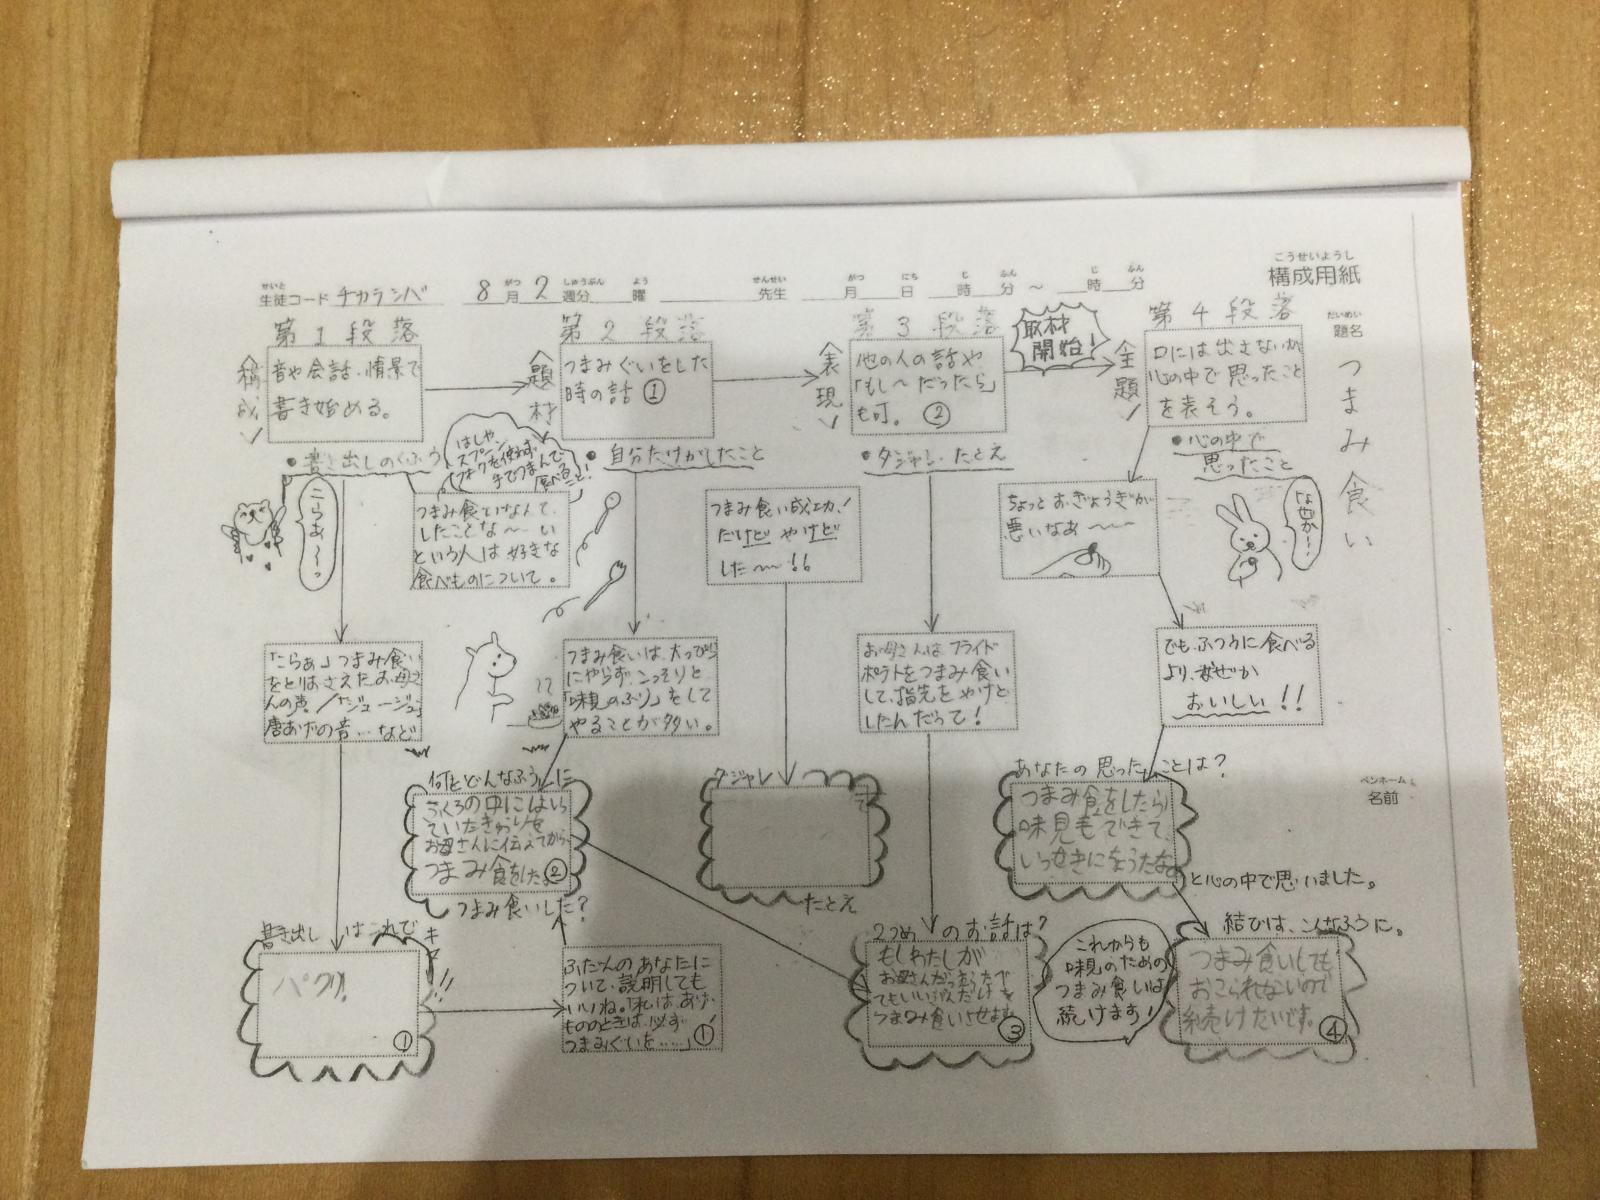 こうせいようし
構成用紙
せいと がつ しゅうぶん よう せんせい がつ にち じ ふん じ ふん
生徒コード チカラシバ 8月2週分 曜 先生 月 日 時 分 ～ 時 分
だいめい
題名
つまみ食い
ペンネーム
名前
第1段落
構成
音や会話、情景で
書き始める。
第2段落
題材
つまみぐいをした
時の話 ①
第3段落
表現
他の人の話や
「もし～だったら」
も可。 ②
取材
開始!
第4段落
主題
口には出さないが
心の中で思ったこと
を表そう。
・書き出しのくふう
はしや
スプーン
フォークを使わず、
手でつまんで
食べる
こと!
・自分だけがしたこと
・ダジャレ・たとえ
・心の中で
思ったこと
こらぁ～っ
つまみ食いなんて、
したことな～い
という人は好きな
食べものについて。
つまみ食い成功!
だけど やけど
した～!!
ちょっとおぎょうぎが
悪いなあ～
なぜか…
「こらぁ」つまみ食い
をとりおさえたお母さ
んの声/「ジュージュ」
唐あげの音…など
つまみ食いは、大っぴら
にやらず、こっそりと
「味見のふり」をして
やることが多い。
お母さんは、フライド
ポテトをつまみ食い
して、指先をやけど
したんだって!
でも、ふつうに食べる
より、なぜか
おいしい!!
何をどんなふうに
ふくろの中にはいっ
ていたきゅうりを
お母さんに伝えてから
つまみ食をしたよ
②
つまみ食いした?
ダジャレ
たとえ
あなたの思ったことは?
つまみ食をしたら
味見もできて、
いっせきにをうだな
と心の中で思いました。
書き出しはこれで
キマリ!!
パクリ!
①
ふだんのあなたに
ついて、説明しても
いいね。「私は、あげ
もののときは、必ず
つまみぐいを……」
①
2つめのお話は?
もしわたしが
お母さんだったら
つまみ食いさせます
③
これからも
味見のための
つまみ食いは
続けます!
結びは、こんなふうに。
つまみ食いしても
おこられないので
続けたいです。
④